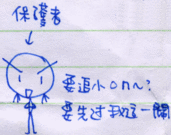 保護者
要追小on~?
要先过我這一關